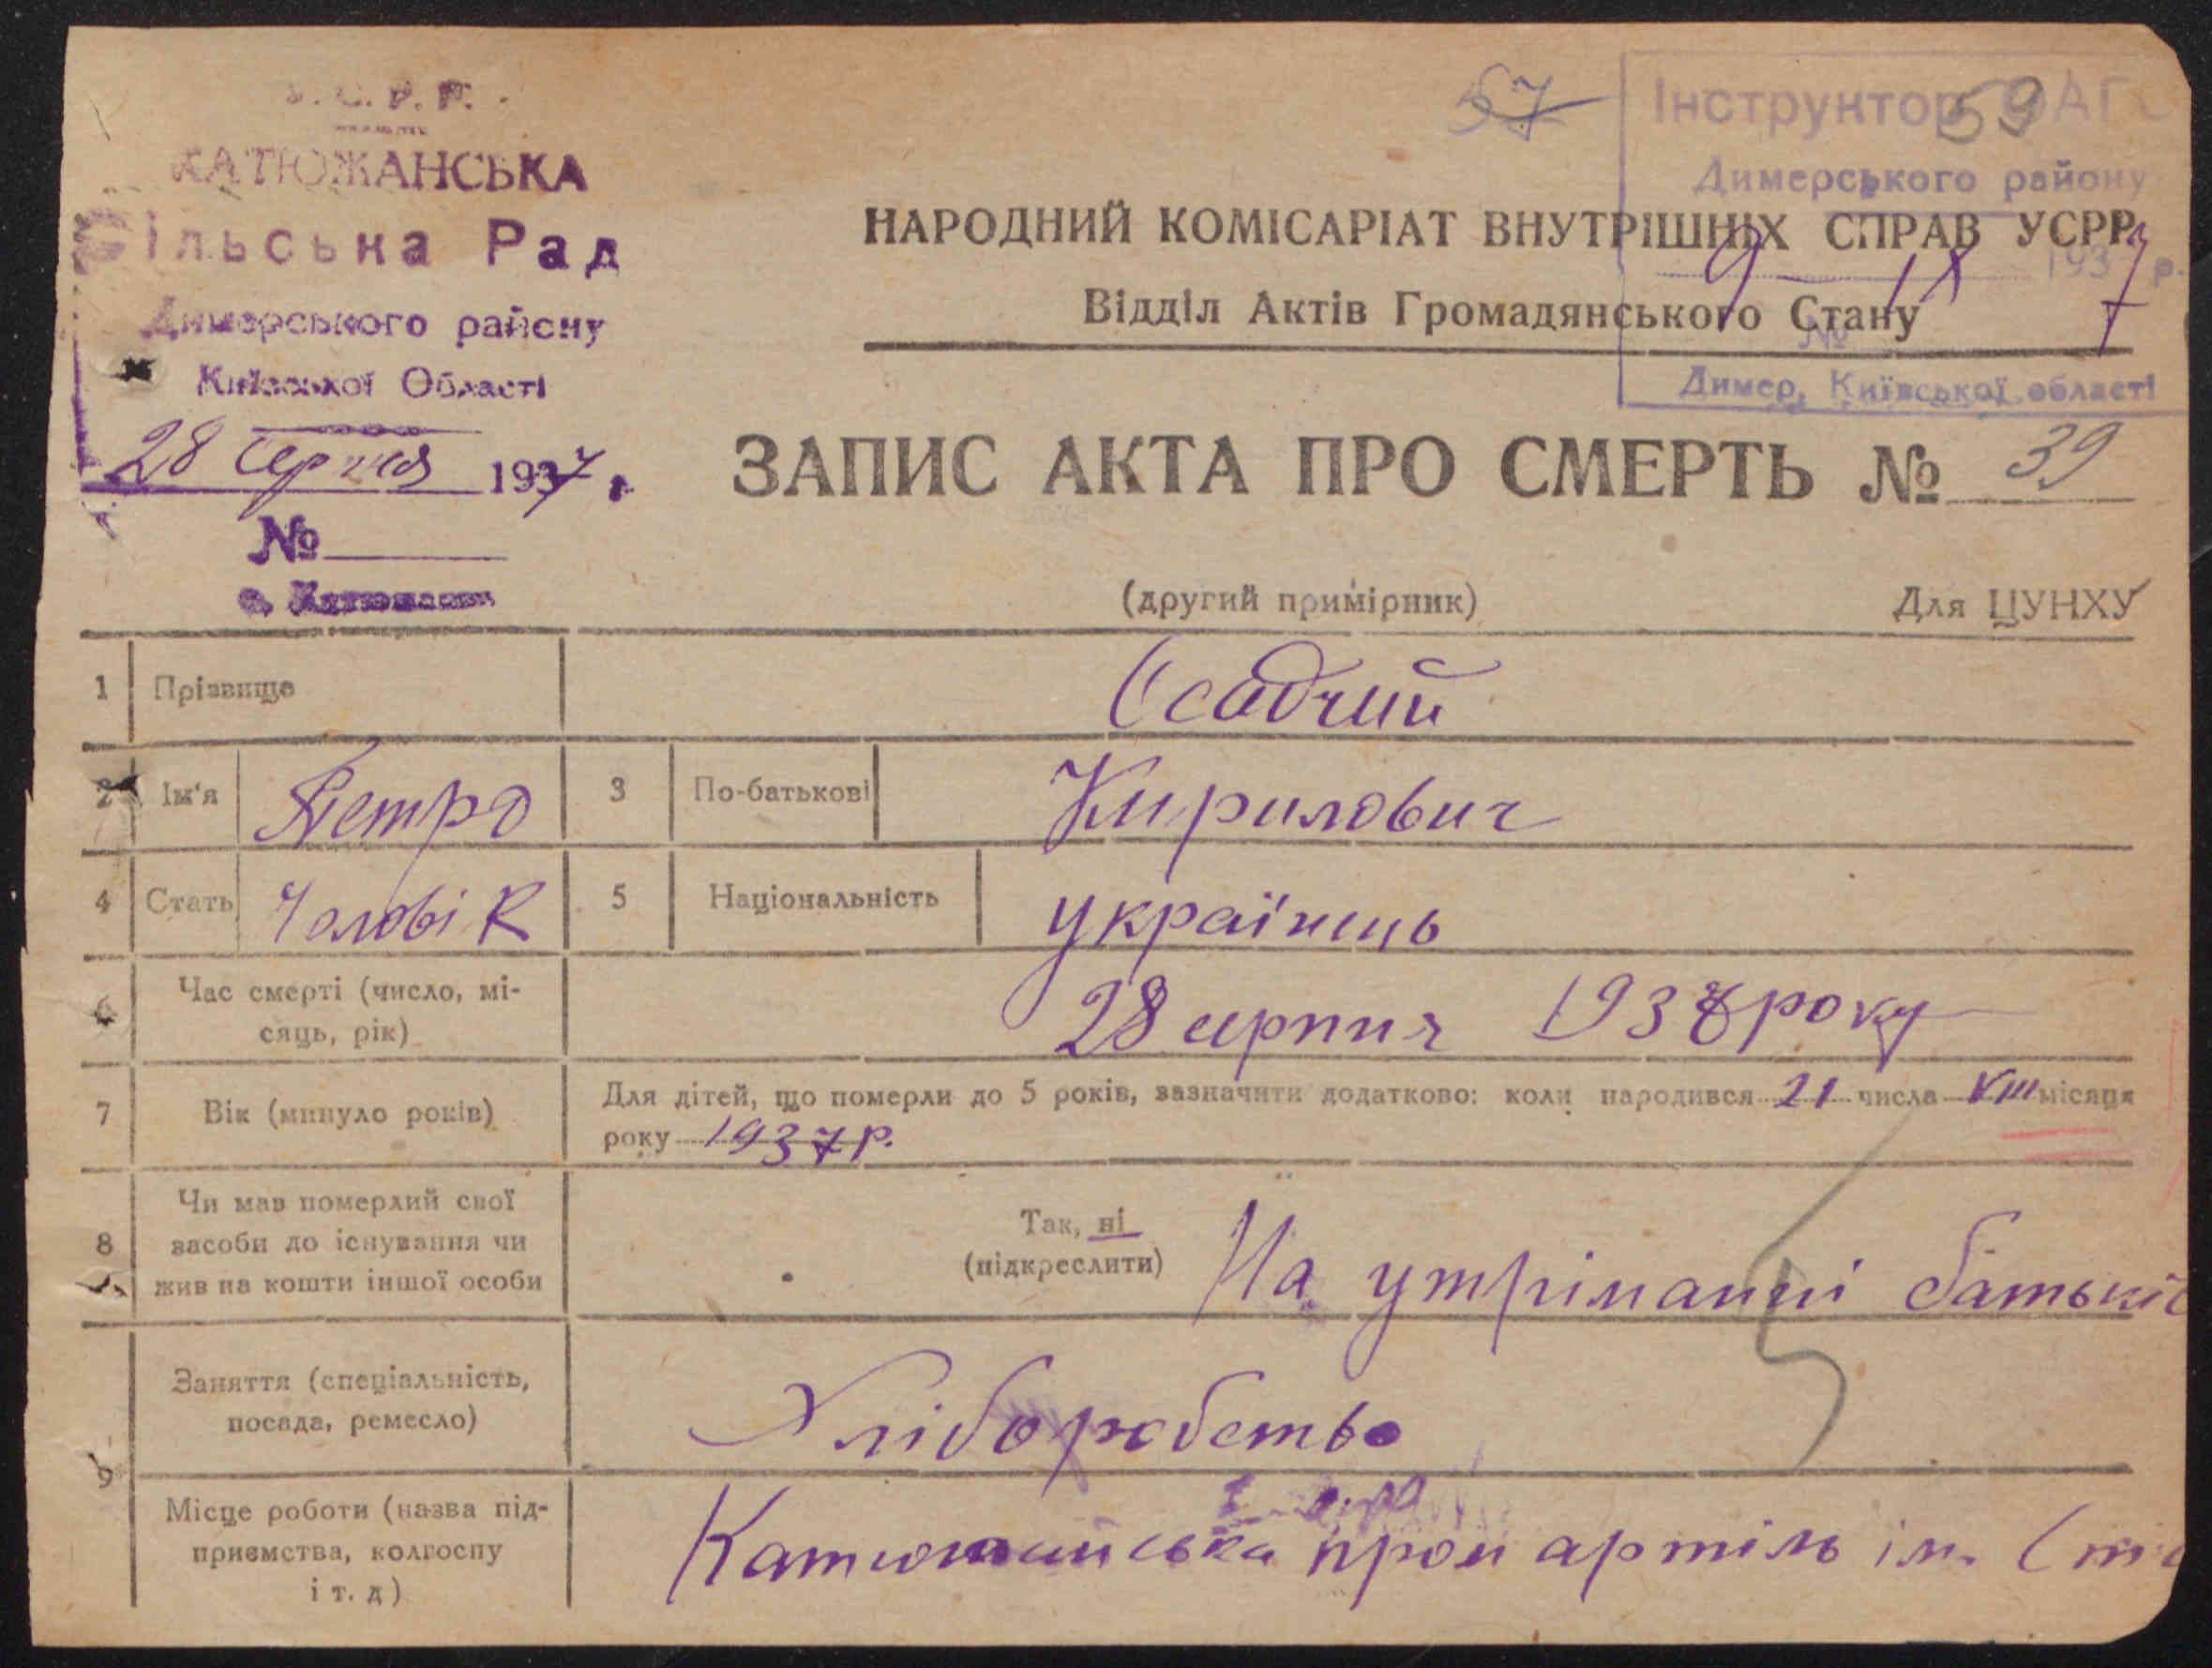 У. С. Р. Р.
КАТЮЖАНСЬКА
Сільська Рад
Димерського району
Київської Області
28 серпня 1937 р.
№
с. Катюжанка
57
59
Інструктор ЗАГС
Димерського району
9 IX 1937 р.
№
Димер, Київської області
НАРОДНИЙ КОМІСАРІАТ ВНУТРІШНІХ СПРАВ УСРР
Відділ Актів Громадянського Стану
ЗАПИС АКТА ПРО СМЕРТЬ № 39
(другий примірник) Для ЦУНХУ
1 Прізвище Осадчий
2 Ім'я Петро 3 По-батькові Кирилович
4 Стать Чоловік 5 Національність українець
6 Час смерті (число, мі-
сяць, рік) 28 серпня 1937 року
7 Вік (минуло років) Для дітей, що померли до 5 років, зазначити додатково: коли народився 21 числа VIII місяця
року 1937 р.
8 Чи мав померлий свої
засоби до існування чи
жив на кошти іншої особи
Так, ні
(підкреслити) На утріманні батьків
9 Заняття (спеціальність,
посада, ремесло) Хліборобство
Місце роботи (назва під-
приємства, колгоспу
і т. д) Катюжанська пром артіль ім. Ст